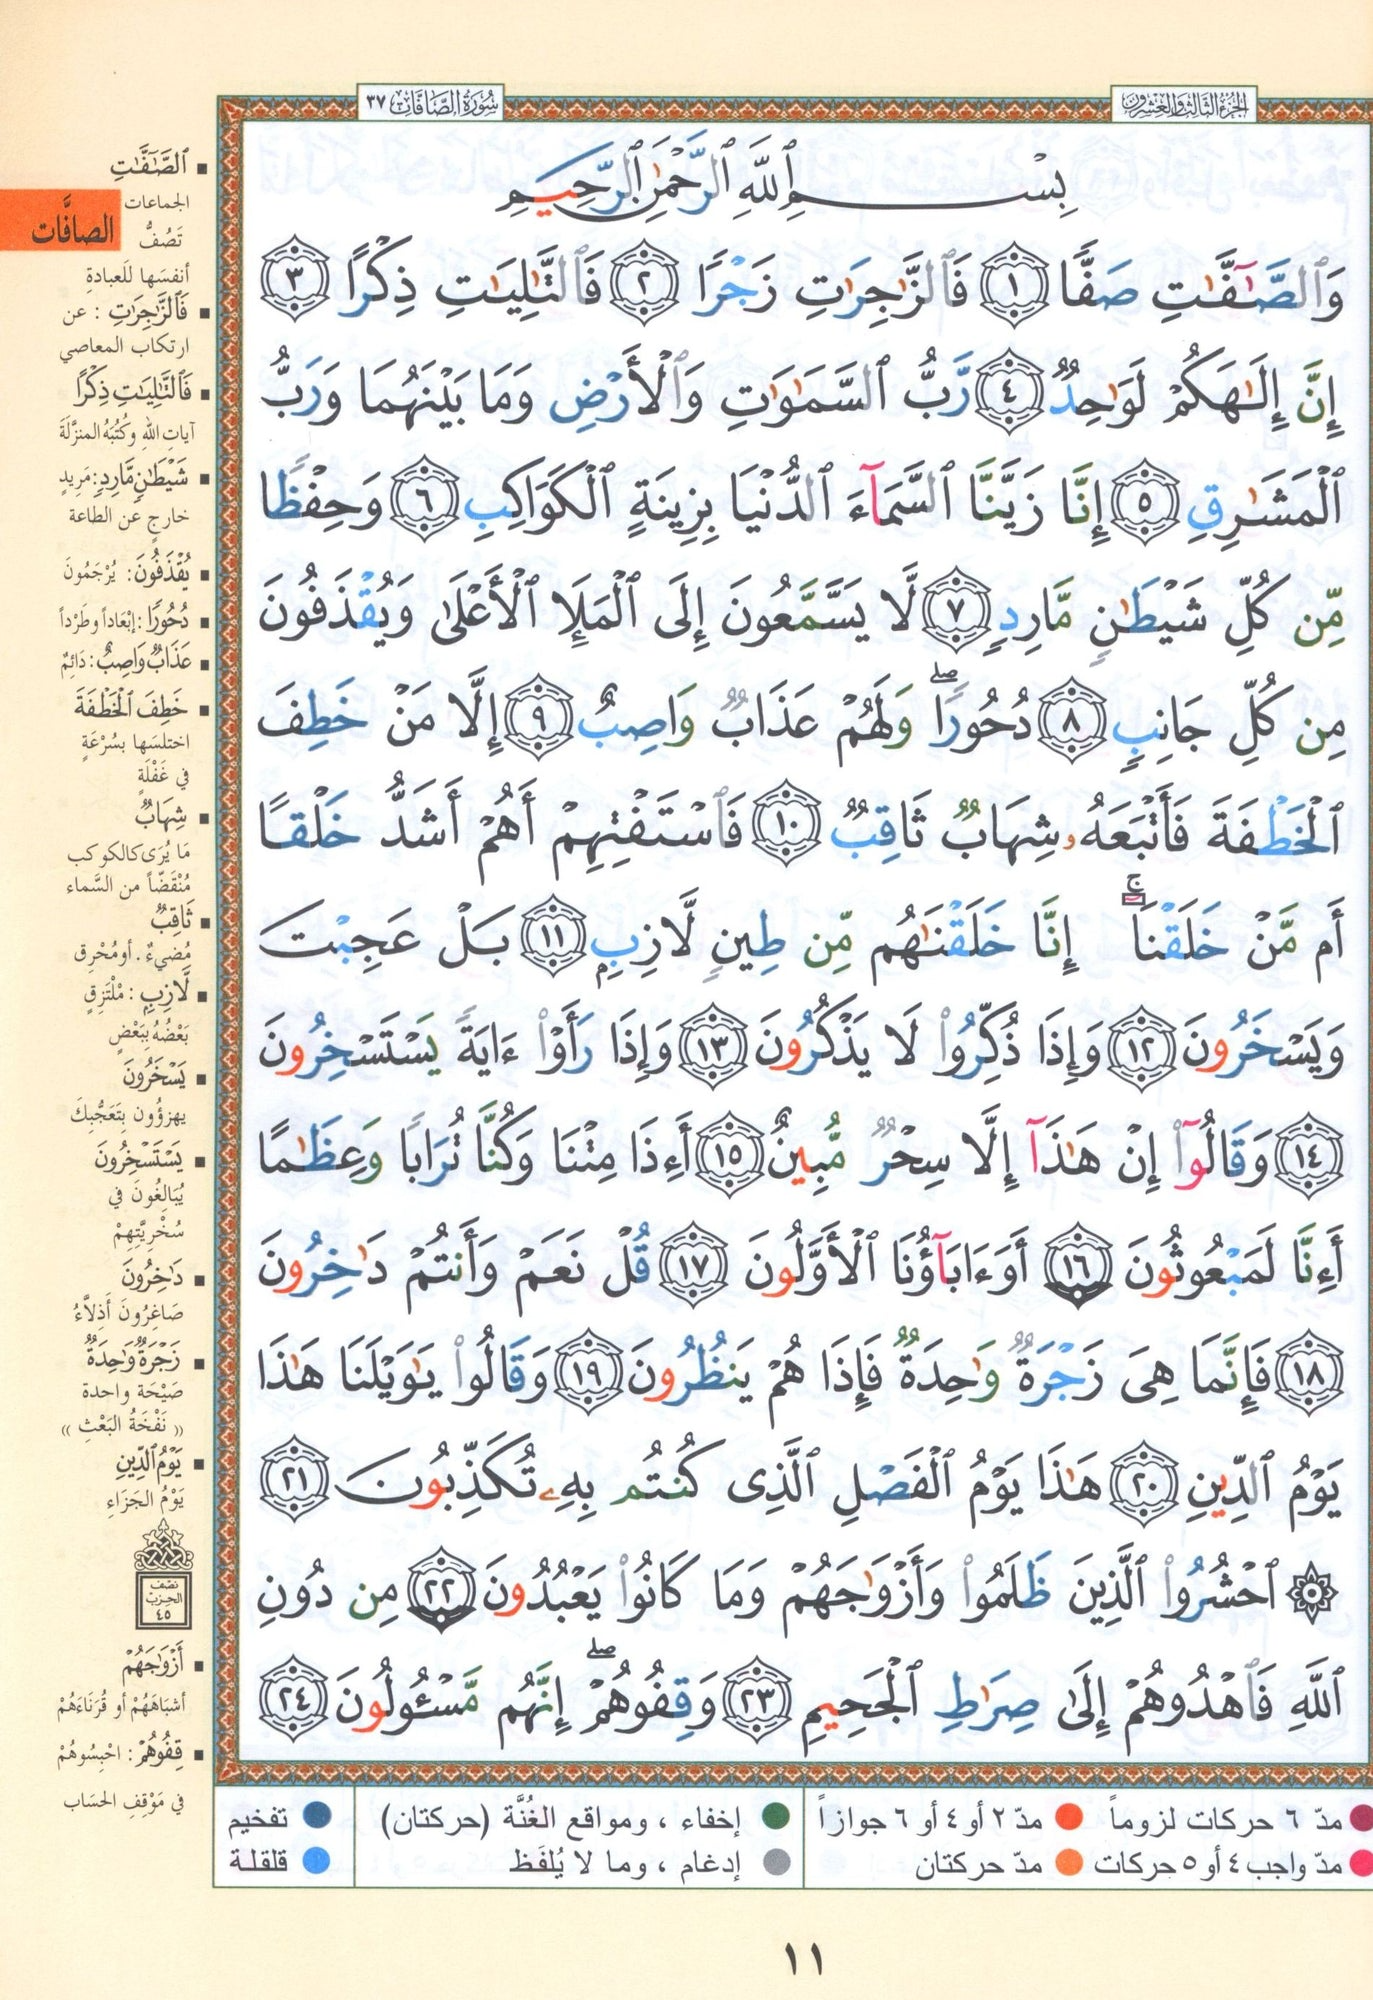 سُورَةُ الصَّافَّات ٣٧
الجزء الثالث والعشرون
بِسْمِ ٱللَّهِ ٱلرَّحْمَٰنِ ٱلرَّحِيمِ
وَٱلصَّٰٓفَّٰتِ صَفًّا ١ فَٱلزَّٰجِرَٰتِ زَجْرًا ٢ فَٱلتَّٰلِيَٰتِ ذِكْرًا ٣
إِنَّ إِلَٰهَكُمْ لَوَٰحِدٌ ٤ رَّبُّ ٱلسَّمَٰوَٰتِ وَٱلْأَرْضِ وَمَا بَيْنَهُمَا وَرَبُّ
ٱلْمَشَٰرِقِ ٥ إِنَّا زَيَّنَّا ٱلسَّمَآءَ ٱلدُّنْيَا بِزِينَةٍ ٱلْكَوَاكِبِ ٦ وَحِفْظًا
مِّن كُلِّ شَيْطَٰنٍ مَّارِدٍ ٧ لَّا يَسَّمَّعُونَ إِلَى ٱلْمَلَإِ ٱلْأَعْلَىٰ وَيُقْذَفُونَ
مِن كُلِّ جَانِبٍ ٨ دُحُورًا ۖ وَلَهُمْ عَذَابٌ وَاصِبٌ ٩ إِلَّا مَنْ خَطِفَ
ٱلْخَطْفَةَ فَأَتْبَعَهُۥ شِهَابٌ ثَاقِبٌ ١٠ فَٱسْتَفْتِهِمْ أَهُمْ أَشَدُّ خَلْقًا
أَم مَّنْ خَلَقْنَا ۚ إِنَّا خَلَقْنَٰهُم مِّن طِينٍ لَّازِبٍ ١١ بَلْ عَجِبْتَ
وَيَسْخَرُونَ ١٢ وَإِذَا ذُكِّرُوا۟ لَا يَذْكُرُونَ ١٣ وَإِذَا رَأَوْا۟ ءَايَةً يَسْتَسْخِرُونَ
١٤ وَقَالُوٓا۟ إِنْ هَٰذَآ إِلَّا سِحْرٌ مُّبِينٌ ١٥ أَءِذَا مِتْنَا وَكُنَّا تُرَابًا وَعِظَٰمًا
أَءِنَّا لَمَبْعُوثُونَ ١٦ أَوَءَابَآؤُنَا ٱلْأَوَّلُونَ ١٧ قُلْ نَعَمْ وَأَنتُمْ دَٰخِرُونَ
١٨ فَإِنَّمَا هِىَ زَجْرَةٌ وَٰحِدَةٌ فَإِذَا هُمْ يَنظُرُونَ ١٩ وَقَالُوا۟ يَٰوَيْلَنَا هَٰذَا
يَوْمُ ٱلدِّينِ ٢٠ هَٰذَا يَوْمُ ٱلْفَصْلِ ٱلَّذِى كُنتُم بِهِۦ تُكَذِّبُونَ ٢١
۞ ٱحْشُرُوا۟ ٱلَّذِينَ ظَلَمُوا۟ وَأَزْوَٰجَهُمْ وَمَا كَانُوا۟ يَعْبُدُونَ ٢٢ مِن دُونِ
ٱللَّهِ فَٱهْدُوهُمْ إِلَىٰ صِرَٰطِ ٱلْجَحِيمِ ٢٣ وَقِفُوهُمْ ۖ إِنَّهُم مَّسْـُٔولُونَ ٢٤
الصافَّات
▪ ٱلصَّٰٓفَّٰتِ
الجماعات
تَصُفُّ
أنفسَها للَعبادةِ
▪ فَٱلزَّٰجِرَٰتِ : عن
ارتكاب المعاصي
▪ فَٱلتَّٰلِيَٰتِ ذِكْرًا
آياتِ اللهِ وكُتُبَهُ المنزَّلَةَ
▪ شَيْطَٰنٍ مَّارِدٍ: مَرِيدٍ
خارجٍ عن الطاعة
▪ يُقْذَفُونَ: يُرْجَمُونَ
▪ دُحُورًا : إبْعَاداً وطَرْداً
▪ عَذَابٌ وَاصِبٌ: دَائِمٌ
▪ خَطِفَ ٱلْخَطْفَةَ
اختلَسَها بسُرْعَةٍ
في غَفْلَةٍ
▪ شِهَابٌ
مَا يُرَى كالكوكب
مُنْقَضّاً من السَّماء
▪ ثَاقِبٌ
مُضيءٌ . أو مُحْرِق
▪ لَّازِبٍ : مُلْتَزِقٍ
بَعْضُهُ بِبَعْضٍ
▪ يَسْخَرُونَ
يهزؤُون بِتَعَجُّبِكَ
▪ يَسْتَسْخِرُونَ
يُبَالِغُونَ في
سُخْرِيَّتِهِمْ
▪ دَٰخِرُونَ
صَاغِرُونَ أَذِلَّاءُ
▪ زَجْرَةٌ وَٰحِدَةٌ
صَيْحَة واحدة
(( نَفْخَةُ البَعْثِ ))
▪ يَوْمُ ٱلدِّينِ
يَوْمُ الجَزَاءِ
نصف
الحزب
٤٥
▪ أَزْوَٰجَهُمْ
أشبَاهَهُمْ أو قُرَنَاءَهُمْ
▪ قِفُوهُمْ : احْبِسُوهُمْ
في مَوْقِفِ الحسَاب
مدّ ٦ حركات لزوماً مدّ ٢ أو ٤ أو ٦ جوازاً إخفاء ، ومواقع الغُنَّة (حركتان) تفخيم
مدّ واجب ٤ أو ٥ حركات مدّ حركتان إدغام ، وما لا يُلفَظ قلقلة
١١